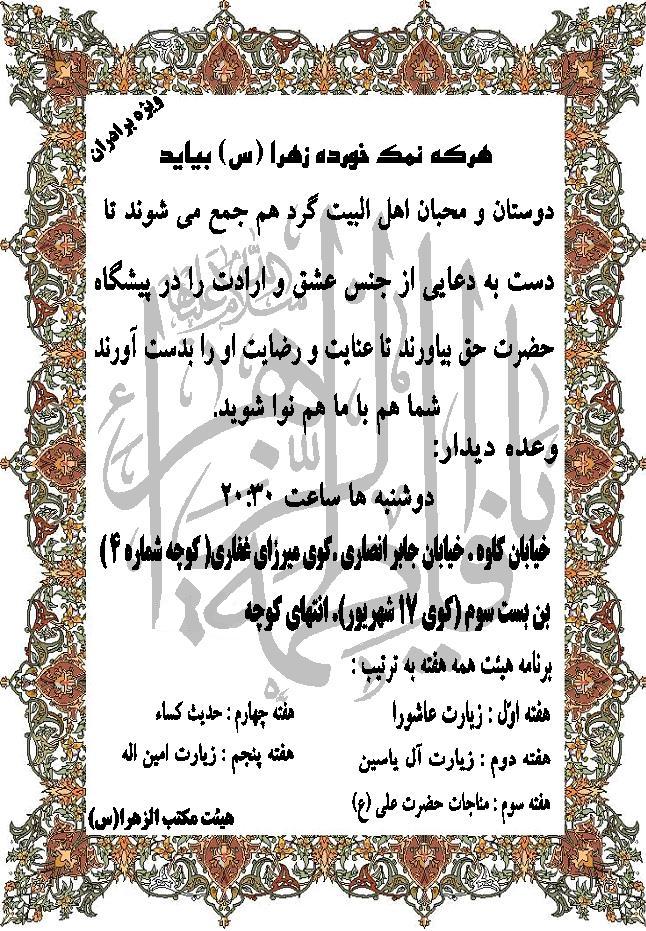 ویژه برادران
هرکه نمک خورده زهرا (س) بیاید
دوستان و محبان اهل البیت گرد هم جمع می شوند تا
دست به دعایی از جنس عشق و ارادت را در پیشگاه
حضرت حق بیاورند تا عنایت و رضایت او را بدست آورند
شما هم با ما هم نوا شوید.
وعده دیدار:
دوشنبه ها ساعت ۲۰:۳۰
خیابان کاوه . خیابان جابر انصاری . کوی میرزای غفاری( کوچه شماره ۴ )
بن بست سوم (کوی ۱۷ شهریور). انتهای کوچه
برنامه هیئت همه هفته به ترتیب :
هفته اوّل : زیارت عاشورا
هفته دوم : زیارت آل یاسین
هفته سوم : مناجات حضرت علی (ع)
هفته چهارم : حدیث کساء
هفته پنجم : زیارت امین اله
هیئت مکتب الزهرا(س)
یا فاطمة الزهراء
سلام الله علیها